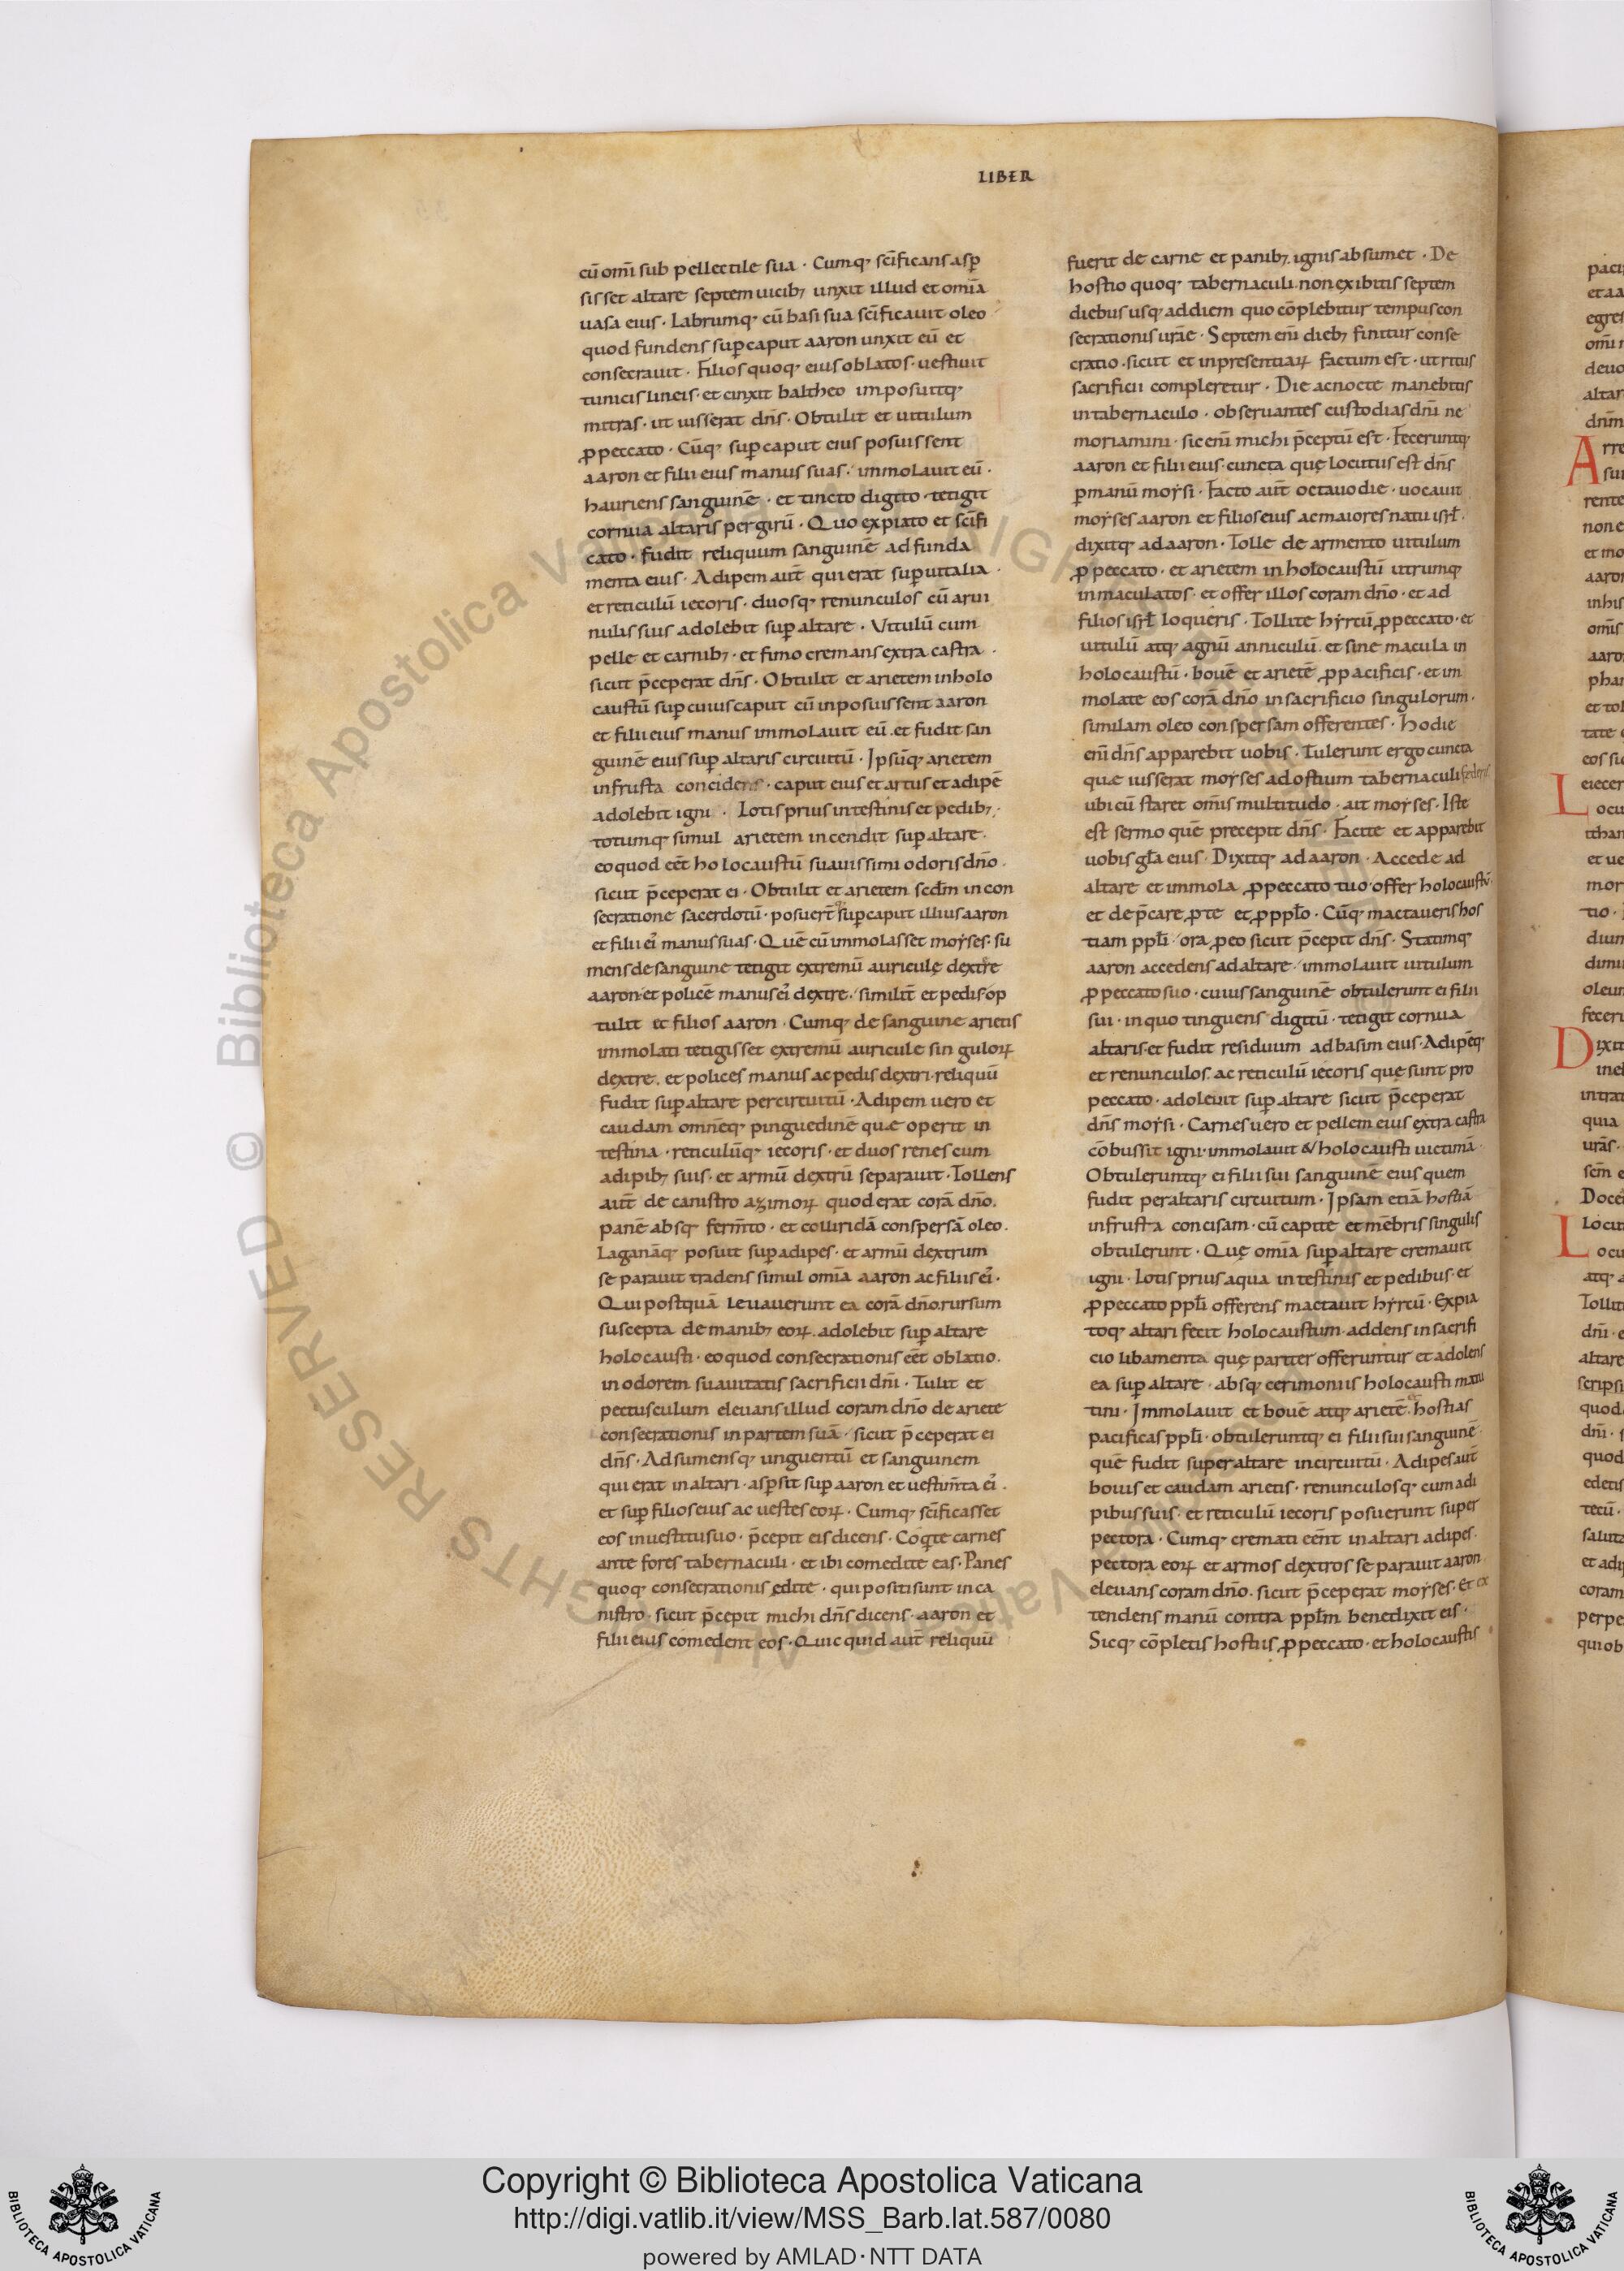 LIBER
cū om̄i sub pellectile sua · Cumq; sc̄ificans asp̄
sisset altare septem uicib; unxit illud et om̄ia
uasa eius · Labrumq; cū basi sua sc̄ificauit oleo
quod fundens sup caput aaron unxit eū et
consecrauit · Filios quoq; eius oblatos · uestiuit
tunicis lineis · et cinxit baltheo imposuitq;
mitras · ut iusserat dn̄s · Obtulit et uitulum
ꝓ peccato · Cūq; sup caput eius posuissent
aaron et filii eius manus suas · immolauit eū ·
hauriens sanguinē · et tincto digito · tetigit
cornua altaris per girū · Quo expiato et sc̄ifi
cato · fudit reliquum sanguinē ad funda
menta eius · Adipem aut̄ qui erat sup uitalia ·
et reticulū iecoris · duosq; renunculos cū arui
nulis suis adolebit sup altare · Vitulū cum
pelle et carnib; · et fimo cremans extra castra ·
sicut p̄ceperat dn̄s · Obtulit et arietem in holo
caustū sup cuius caput cū inposuissent aaron
et filii eius manus immolauit eū · et fudit san
guinē eius sup altaris circuitū · Ipsūq; arietem
in frusta concidens · caput eius et artus et adipē
adolebit igni · Lotis prius intestinis et pedib; ·
totumq; simul arietem incendit sup altare ·
eo quod eēt holocaustū suauissimi odoris dn̄o ·
sicut p̄ceperat ei · Obtulit et arietem scd̄m in con
secratione sacerdotū · posuer̄t sup caput illius aaron
et filii ei᷒ manus suas · Quē cū immolasset moẏses · su
mens de sanguine tetigit extremū auriculę dextre
aaron · et policē manus ei᷒ dextre · similit̄ et pedis · op
tulit et filios aaron · Cumq; de sanguine arietis
immolati tetigisset extremū auricule singuloꝝ
dextre · et polices manus ac pedis dextri · reliquū
fudit sup altare per circuitū · Adipem uero et
caudam omnēq; pinguedinē que operit in
testina · reticulūq; iecoris · et duos renes cum
adipib; suis · et armū dextrū separauit · Tollens
aut̄ de canistro azimoꝝ quod erat corā dn̄o ·
panē absq; ferm̄to · et colliridā conspersā oleo ·
Laganāq; posuit sup adipes · et armū dextrum
separauit tradens simul om̄ia aaron ac filiis ei᷒ ·
Qui postquā leuauerunt ea corā dn̄o · rursum
suscepta de manib; eoꝝ · adolebit sup altare
holocausti · eo quod consecrationis eēt oblatio ·
in odorem suauitatis sacrificii dn̄i · Tulit et
pectusculum eleuans illud coram dn̄o de ariete
consecrationis in partem suā · sicut p̄ceperat ei
dn̄s · Adsumensq; unguentū et sanguinem
qui erat in altari · aspsit sup aaron et uestim̄ta ei᷒ ·
et sup filios eius ac uestes eoꝝ · Cumq; sc̄ificasset
eos in uestitu suo · p̄cepit eis dicens · Coqite carnes
ante fores tabernaculi · et ibi comedite eas · Panes
quoq; consecrationis edite · qui positi sunt in ca
nistro · sicut p̄cepit michi dn̄s dicens · aaron et
filii eius comedent eos · Quicquid aut̄ reliquū
fuerit de carne et panib; · ignis absumet · De
hostio quoq; tabernaculi · non exibitis septem
diebus usq; ad diem quo cōplebitur tempus con
secrationis ur̄ae · Septem eni dieb; finitur conse
cratio · sicut et inpresentiaꝝ factum est · ut ritus
sacrificii compleretur · Die ac nocte manebitis
in tabernaculo · obseruantes custodias dn̄i ne
moriamini · sic enī michi p̄ceptū est · Feceruntq;
aaron et filii eius · cuncta quę locutus est dn̄s
p manū moẏsi · Facto aut̄ octauo die · uocauit
moẏses aaron et filios eius ac maiores natu isrł ·
dixitq; ad aaron · Tolle de armento uitulum
ꝓ peccato · et arietem in holocaustū utrumq;
inmaculatos · et offer illos coram dn̄o · et ad
filios isrł loqueris · Tollite hẏrcū ꝓ peccato · et
uitulū atq; agnū anniculū · et sine macula in
holocaustū · bouē et arietē ꝓ pacificis · et im
molate eos corā dn̄o in sacrificio singulorum ·
similam oleo conspersam offerentes · Hodie
enī dn̄s apparebit uobis · Tulerunt ergo cuncta
que iusserat moẏses ad ostium tabernaculi federis
ubi cū staret om̄is multitudo · ait moẏses · Iste
est sermo quē precepit dn̄s · Facite et apparebit
uobis gła eius · Dixitq; ad aaron · Accede ad
altare et immola ꝓ peccato tuo · offer holocaustū ·
et dep̄care ꝓ te et ꝓ ppło · Cūq; mactaueris hos
tiam ppłi · ora ꝓ eo sicut p̄cepit dn̄s · Statimq;
aaron accedens ad altare · immolauit uitulum
ꝓ peccato suo · cuius sanguinē obtulerunt ei filii
sui · in quo tinguens digitū · tetigit cornua
altaris · et fudit residuum ad basim eius · Adipēq;
et renunculos · ac reticulū iecoris quę sunt pro
peccato · adoleuit sup altare sicut p̄ceperat
dn̄s moẏsi · Carnes uero et pellem eius extra castra
cōbussit igni · immolauit & holocausti uictimā ·
Obtuleruntq; ei filii sui sanguinē eius quem
fudit per altaris circuitum · Ipsam etiā hostiā
in frusta concisam · cū capite et mēbris singulis
obtulerunt · Quę om̄ia sup altare cremauit
igni · Lotis prius aqua intestinis et pedibus · et
ꝓ peccato ppłi offerens mactauit hẏrcū · Expia
toq; altari fecit holocaustum · addens in sacrifi
cio libamenta quę pariter offeruntur et adolens
ea sup altare · absq; cerimoniis holocausti matu
tini · Immolauit et bouē atq; arietē · hostias
pacificas ppłi · obtuleruntq; ei filii sui sanguinē
quē fudit super altare in circuitū · Adipes aut̄
bouis et caudam arietis · renunculosq; cum adi
pibus suis · et reticulū iecoris posuerunt super
pectora · Cumq; cremati eēnt in altari adipes ·
pectora eoꝝ et armos dextros separauit aaron ·
eleuans coram dn̄o · sicut p̄ceperat moẏses · Et ex
tendens manū contra ppłm benedixit eis ·
Sicq; cōpletis hostiis ꝓ peccato · et holocaustis
Copyright © Biblioteca Apostolica Vaticana
http://digi.vatlib.it/view/MSS_Barb.lat.587/0080
powered by AMLAD·NTT DATA